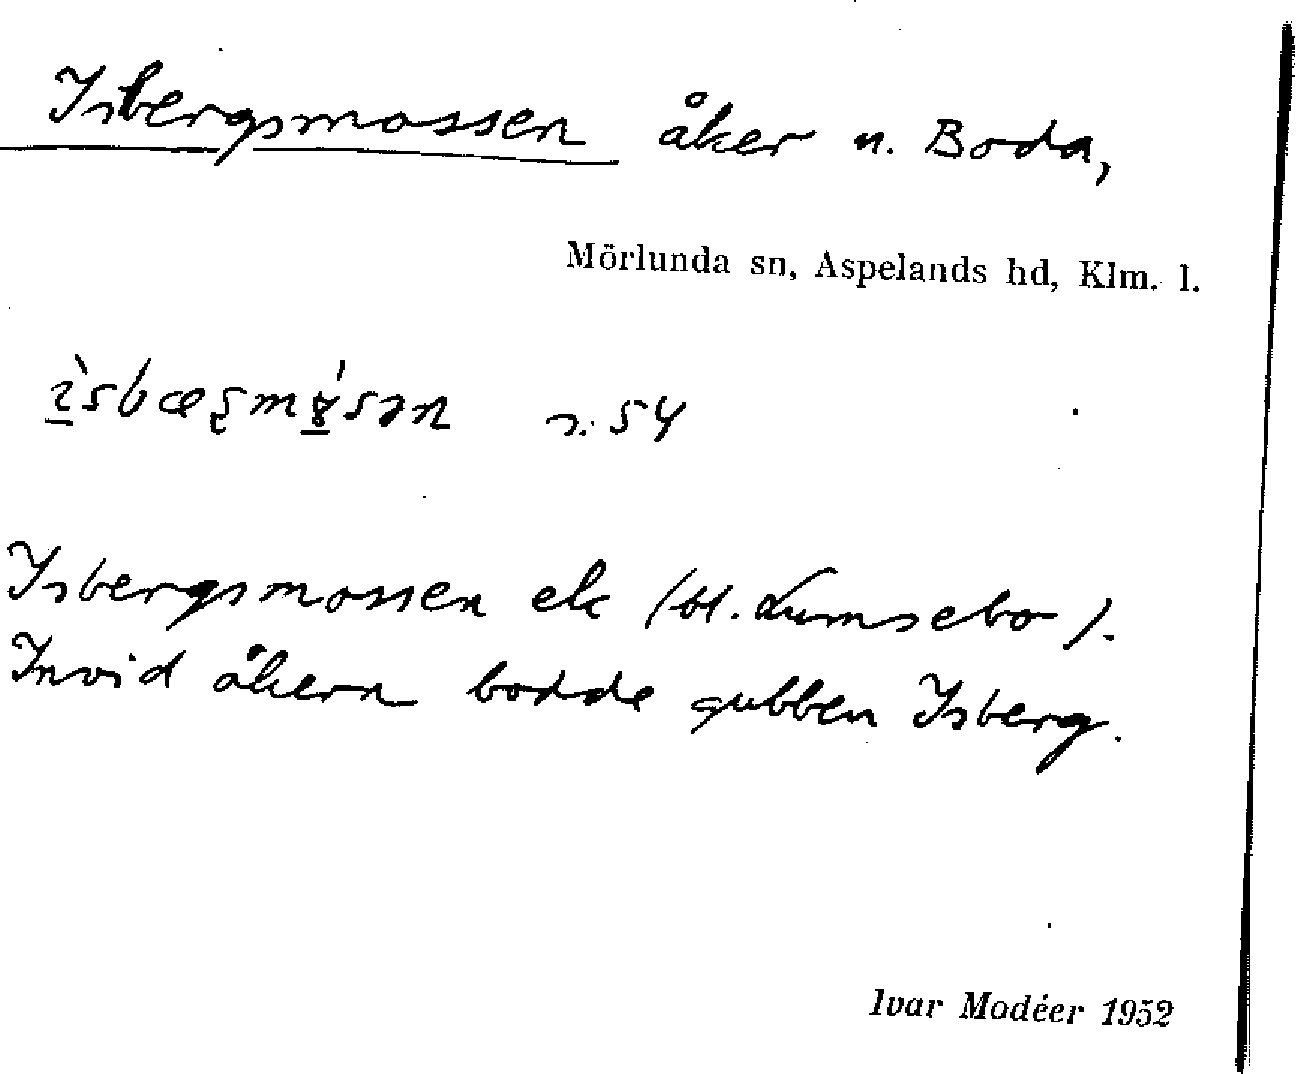 Isbergsmossen åker n. Boda,
Mörlunda sn, Aspelands hd, Klm. l.
54
Isbergsmossen ek (bl. Lumsebo).
Invid åkern bodde gubben Isberg.
Ivar Modéer 1952